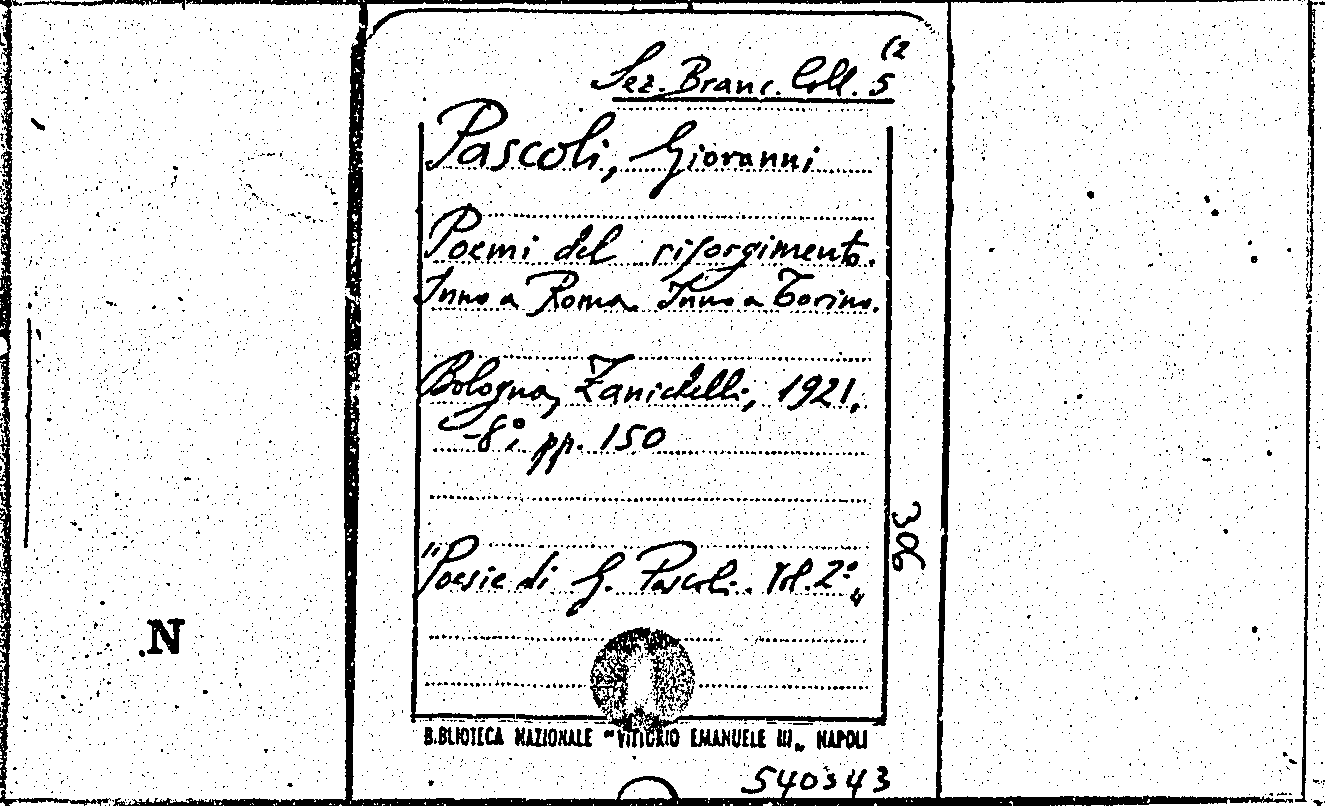 (2
Sez. Branc. Coll. 5
Pascoli, Giovanni
Poemi del risorgimento.
Inno a Roma. Inno a Torino.
Bologna, Zanichelli, 1921,
-8°, pp. 150
"Poesie di G. Pascoli. Vol. 2°„
306
N
BIBLIOTECA NAZIONALE "VITTORIO EMANUELE III„ NAPOLI
540343